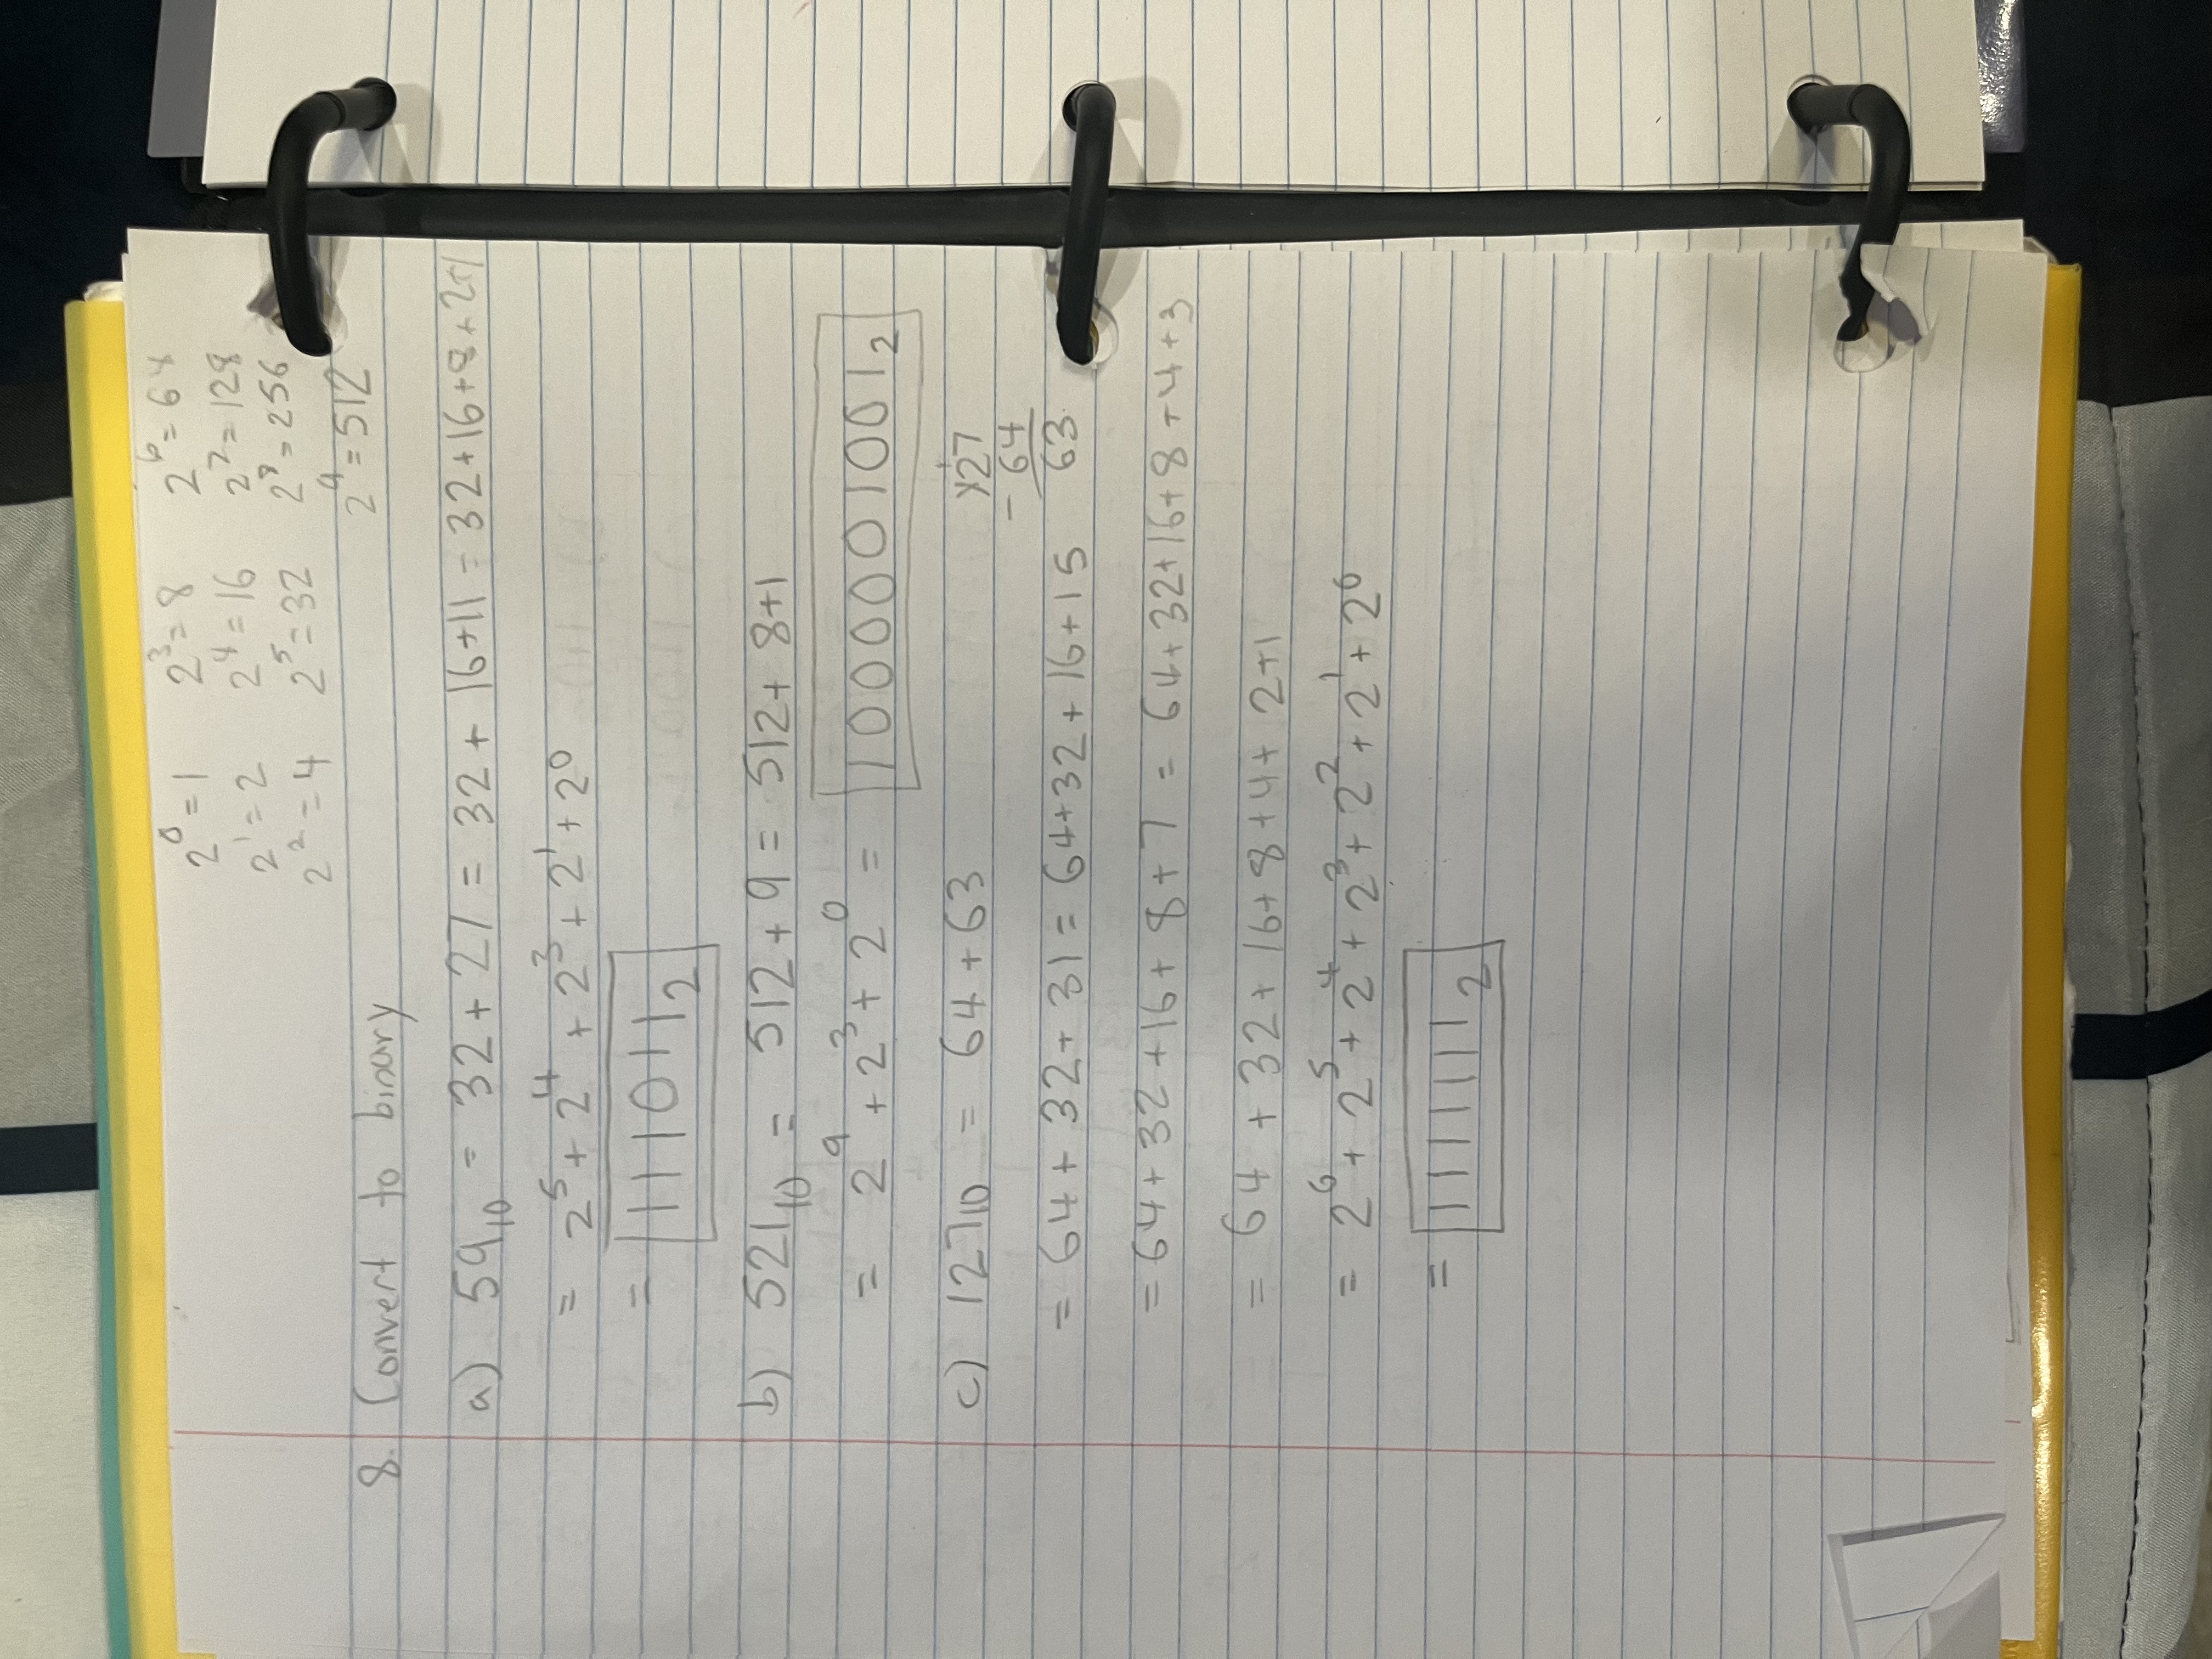 2⁰ = 1 2³ = 8 2⁶ = 64
2¹ = 2 2⁴ = 16 2⁷ = 128
2² = 4 2⁵ = 32 2⁸ = 256
2⁹ = 512
8. Convert to binary
a) 59₁₀ = 32 + 27 = 32 + 16+11 = 32+16+8+2+1
= 2⁵ + 2⁴ + 2³ + 2¹ + 2⁰
= 111011₂
b) 521₁₀ = 512 + 9 = 512 + 8+1
= 2⁹ + 2³ + 2⁰ = 1000001001₂
c) 127₁₀ = 64 + 63
127
- 64
63
= 64 + 32 + 31 = 64+32 + 16+15
= 64 + 32 + 16 + 8 + 7 = 64+32+16+8+4+3
= 64 + 32 + 16+8+4+ 2+1
= 2⁶ + 2⁵ + 2⁴ + 2³ + 2² + 2¹ + 2⁰
= 1111111₂